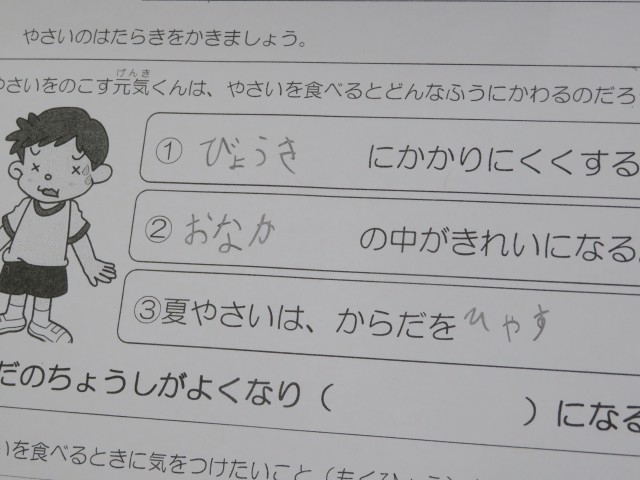 やさいのはたらきをかきましょう。
やさいをのこす元気くんは、やさいを食べるとどんなふうにかわるのだろ
げんき
① びょうき にかかりにくくする
② おなか の中がきれいになる
③夏やさいは、からだをひやす
だのちょうしがよくなり（ ）になる
いを食べるときに気をつけたいこと（もくひょう）